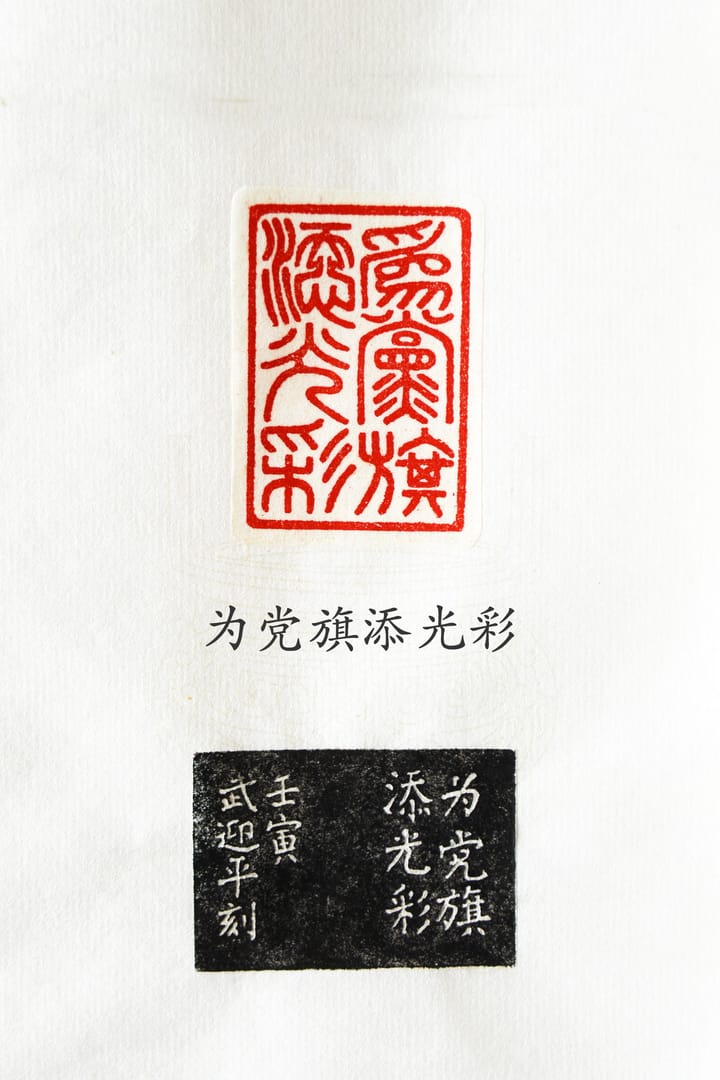 為黨旗
添光彩
为党旗添光彩
为党旗
添光彩
壬寅
武迎平刻